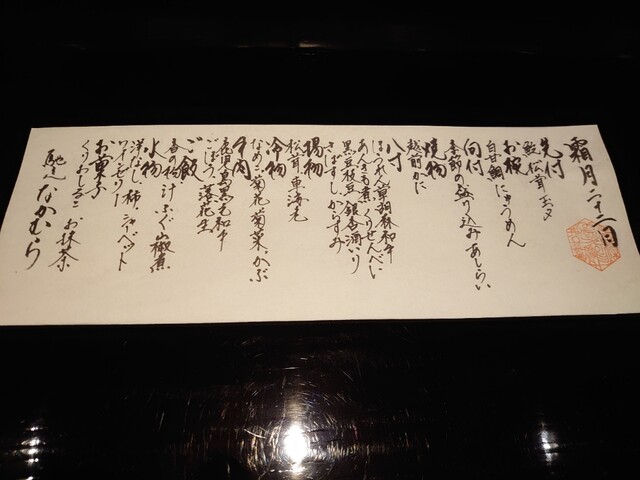 霜月二十二日
先付
鮑 松茸 玉〆
お椀
白甘鯛 にゅうめん
向付
季節の盛り込み あしらい
焼物
越前かに
八寸
ほうれん草 胡麻和え
あんきも煮 くりせんべい
黒豆枝豆 銀杏酒いり
さばすし からすみ
揚物
松茸 車海老
冷物
なめこ 菊花 菊菜 かぶ
牛肉
鹿児島黒毛和牛
ごぼう 落花生
ご飯
香の物 汁 ふぐ山椒煮
水物
洋なし 柿 シャーベット
ワインゼリー
お菓子
くりおしるこ お抹茶
馳走 なかむら